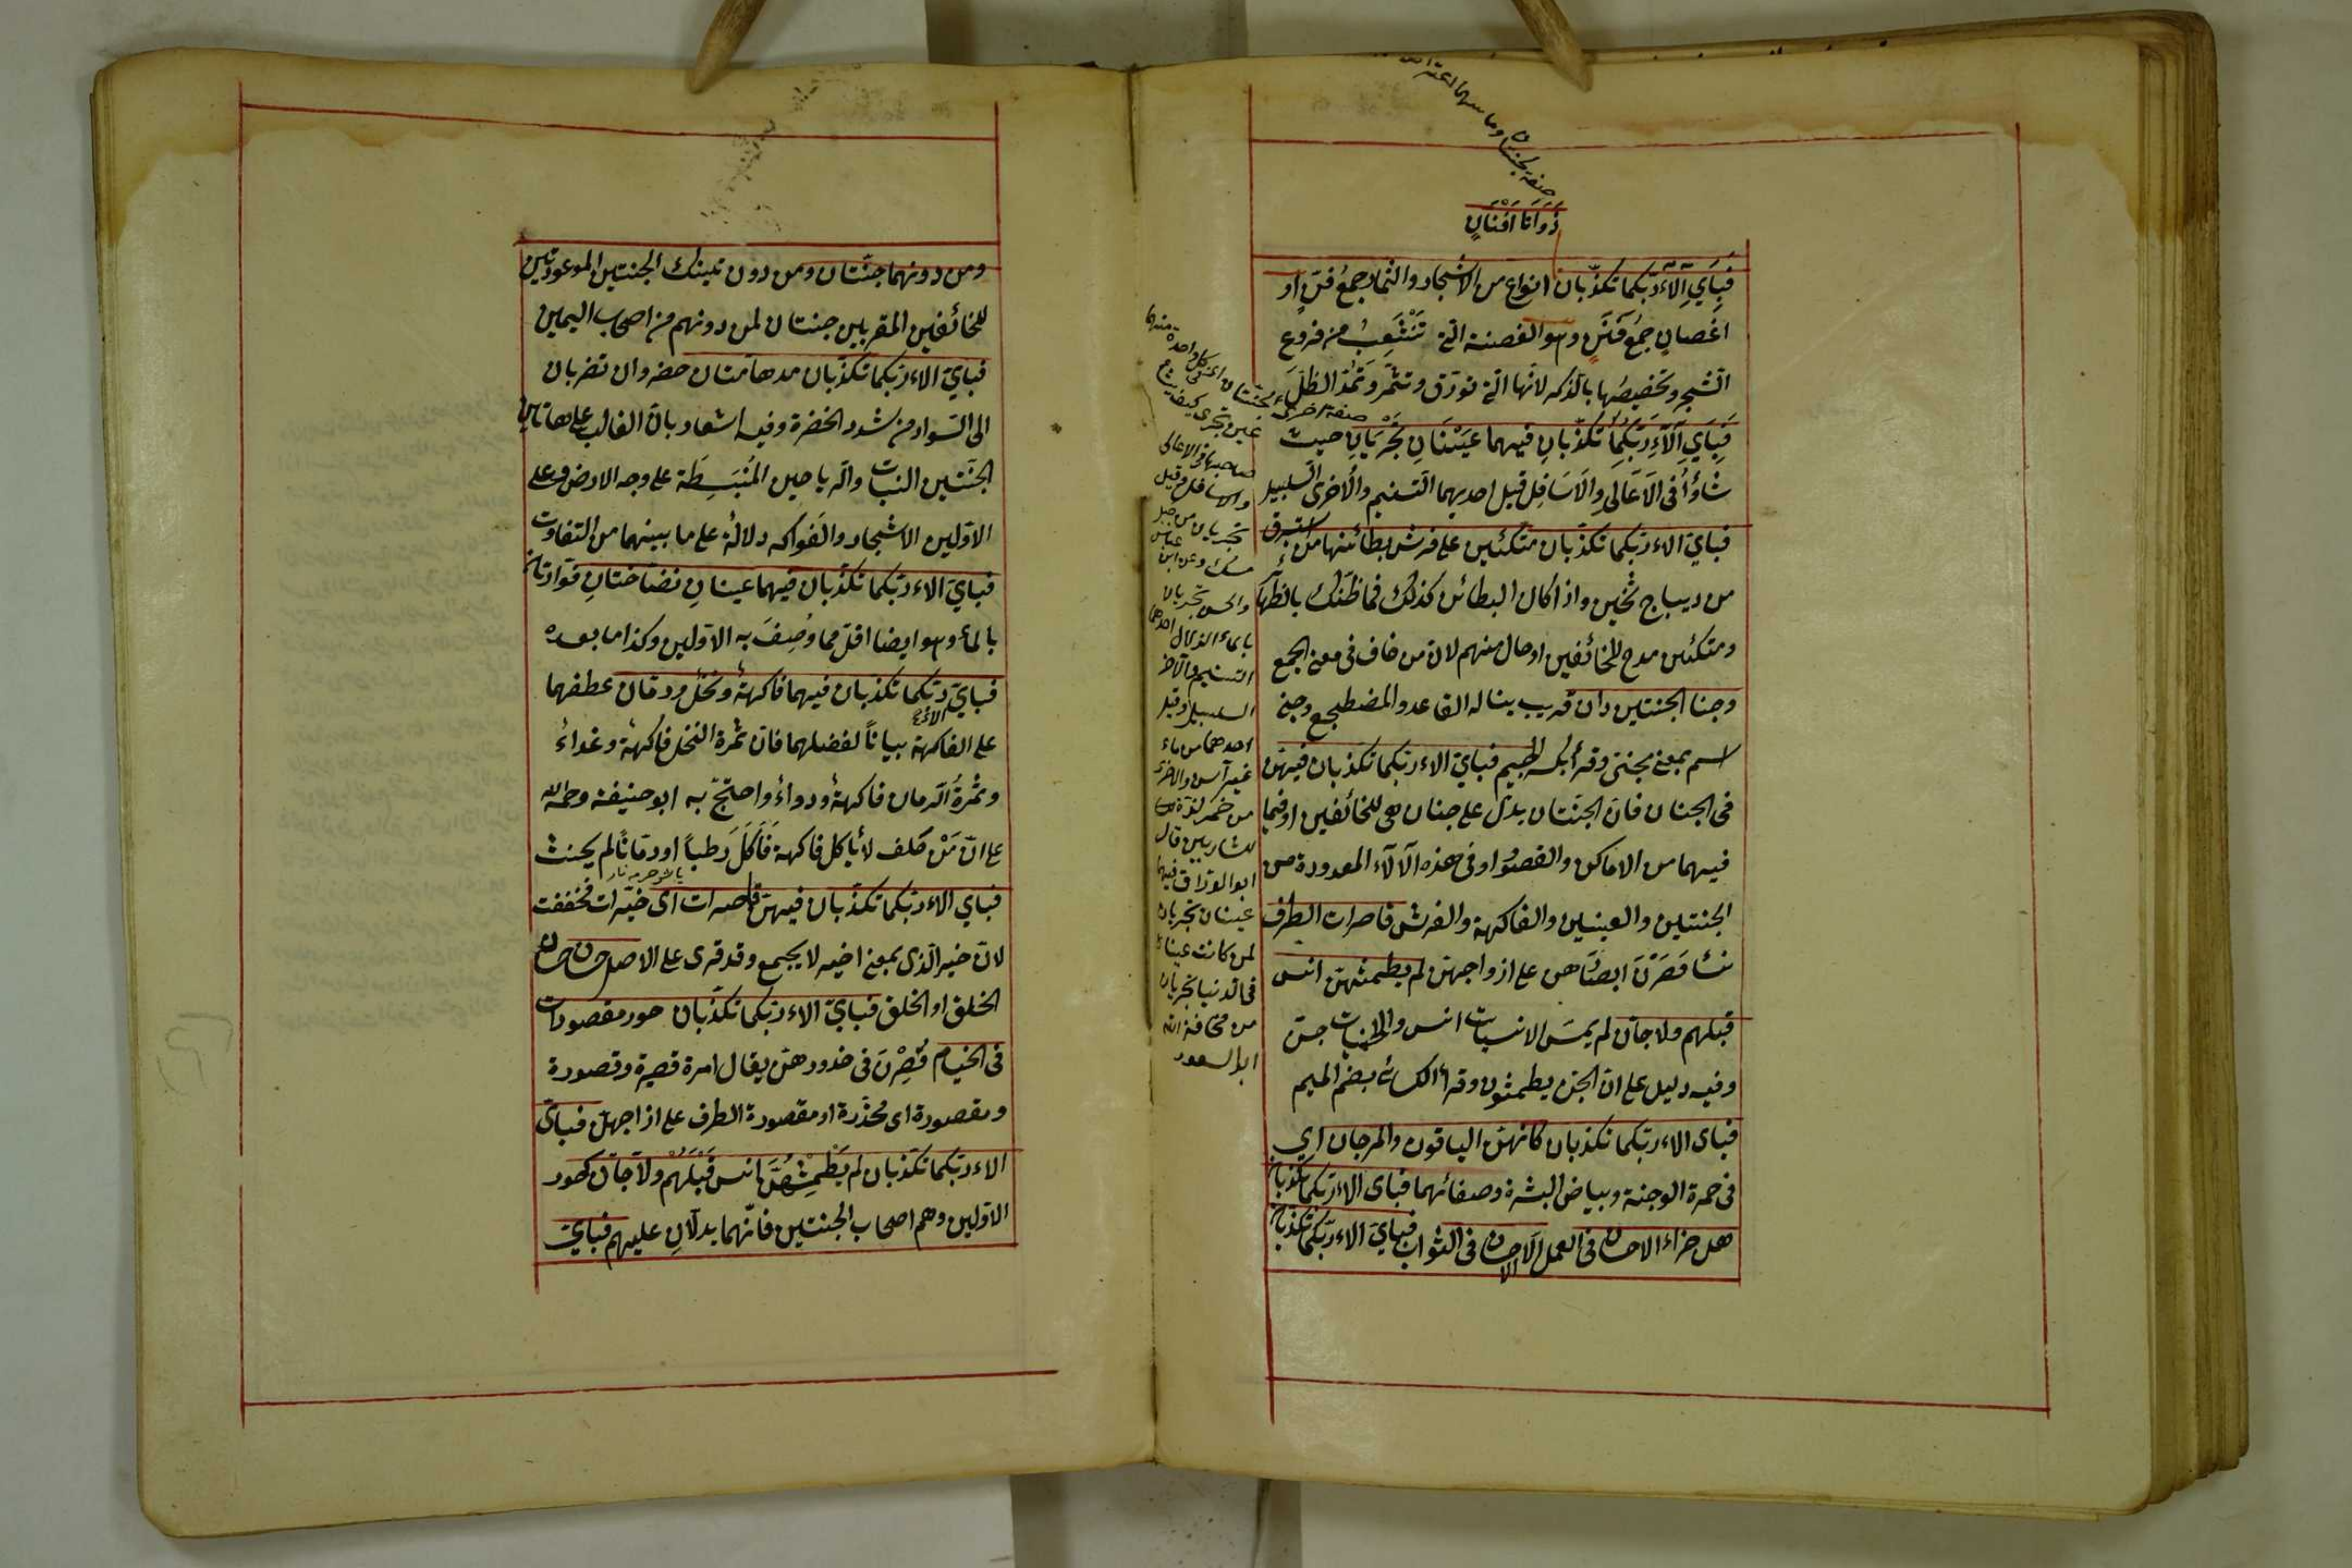 صفة لجنتان وما بينهما اعتراض
ذَوَاتَا اَفْنَانٍ
فَبِاَيِّ اٰلَآءِ رَبِّكُمَا تُكَذِّبَانِ انواع من الاشجار والثمار جمع فنٍّ او
اغصانٍ جمع فَنَنٍ وهو الغصنة التى تَنْشَعِبُ من فروع
الشجر وتخصيصُها بالذكر لانّها التى تورَق وتثمَر وتَمُدّ الظلّ
فَبِاَيِّ اٰلَآءِ رَبِّكُمَا تُكَذِّبَانِ فيهما عَيْنَانِ تَجْرِيَانِ حيث
شاؤُا فى الاَعَالِى والاَسَافِل قيل احديهما التسنيم والاُخرى السلسبيل
فباىّ الاء ربّكما تكذّبان متكئين على فرش بطائنها من استبرق
من ديباج ثخين واذا كان البطائن كذلك فما ظنّك بالظهائر
ومتكئين مدح للخائفين او حال منهم لان من خاف فى معنى الجمع
وجنا الجنتين دان قريب يناله القاعد والمضطجع وجنى
اسم بمعنى مجنىّ وقرأ بكسر الجيم فباىّ الاء ربّكما تكذبان فيهنّ
فى الجنان فانّ الجنّتان يدلّ على جنان هى للخائفين او فيما
فيهما من الاماكن والقصور او فى هذه الآلاء المعدودة من
الجنتين والعينين والفاكهة والفرش قاصرات الطرف
نسأ قَصَرْنَ ابصارَهن على ازواجهنّ لم يطمثهنّ انس
قبلهم ولا جانّ لم يمسّ الانسيات انس والجنيات جنّ
وفيه دليل على انّ الجنّ يطمثون وقرأ الكسائى بضم الميم
فباى الاء ربّكما تكذبان كانّهنّ الياقوت والمرجان اى
فى حمرة الوجنة وبياض البشرة وصفائهما فباى الاء ربّكما تكذبان
هل جزاء الاحسان فى العمل الا الاحسان فى الثواب فباىّ الاء ربّكما تكذبان
صفة اخرى لجنتان اى فى كل واحدة منهما
عين تجرى كيف يشاء
صاحبها فى الاعالى
والاسافل وقيل
تجريان من جبل
مسك وعن ابن عباس
والحسن تجريان
بالماء الزلال احدهما
التسنيم والآخر
السلسبيل وقيل
احدهما من ماء
غير آسن والاخرى
من خمر لذة
للشاربين قال
ابو الورّاق فيهما
عينان تجريان
لمن كانت عيناه
فى الدنيا تجريان
من مخافة الله
ابو السعود
ومن دونهما جنّتان ومن دون تينك الجنتين الموعودتين
للخائفين المقربين جنتان لمن دونهم من اصحاب اليمين
فباىّ الاء ربّكما تكذّبان مدهامّتان خضراوان تضربان
الى السّواد من شدد الخضرة وفيه اشعار بانّ الغالب على هاتين
الجنّتين النبات والرياحين المُنْبَسِطَة على وجه الارض وعلى
الاوّلين الاشجار والفَواكه دلالةً على ما بينهما من التفاوت
فباىّ الاء ربّكما تكذّبان فيهما عينانِ نضّاختانِ فوّارتان
بالماء وهو ايضا اقلّ مما وُصِفَ به الاوّلين وكذا ما بعده
فباىّ الاء ربّكما تكذبان فيهما فاكهةٌ ونخلٌ ورمّان عطفهما
على الفاكهة بياناً لفضلهما فانّ ثمرة النخل فاكهة وغداءٌ
وثمرةُ الرمان فاكهةٌ ودواءٌ واحتجّ به ابو حنيفة رحمه الله
على انّ مَنْ حَلف لا يأكل فاكهة فَاَكَلَ رَطباً او رمّاناً لم يحنث
فباي الاء ربّكما تكذّبان فيهنّ خيرات اى خيّرات فخففت
لانّ خير الّذى بمعنى اخير لا يجمع وقد قرى على الاصل حسان حسان
الخلق او الخلق فباىّ الاء ربكما تكذّبان حور مقصورات
فى الخيام قُصِرْنَ فى خدورهنّ يقال امرة قصيرة وقصورة
ومقصورة اى مُخدّرة او مقصورة الطرف على ازاجهنّ فباىّ
الاء ربّكما تكذبان لم يَطْمِثْهُنَّ انس قَبْلَهُمْ ولا جانّ كحور
الاوّلين وهم اصحاب الجنتين فانّهما يدلّانِ عليهم فباىّ